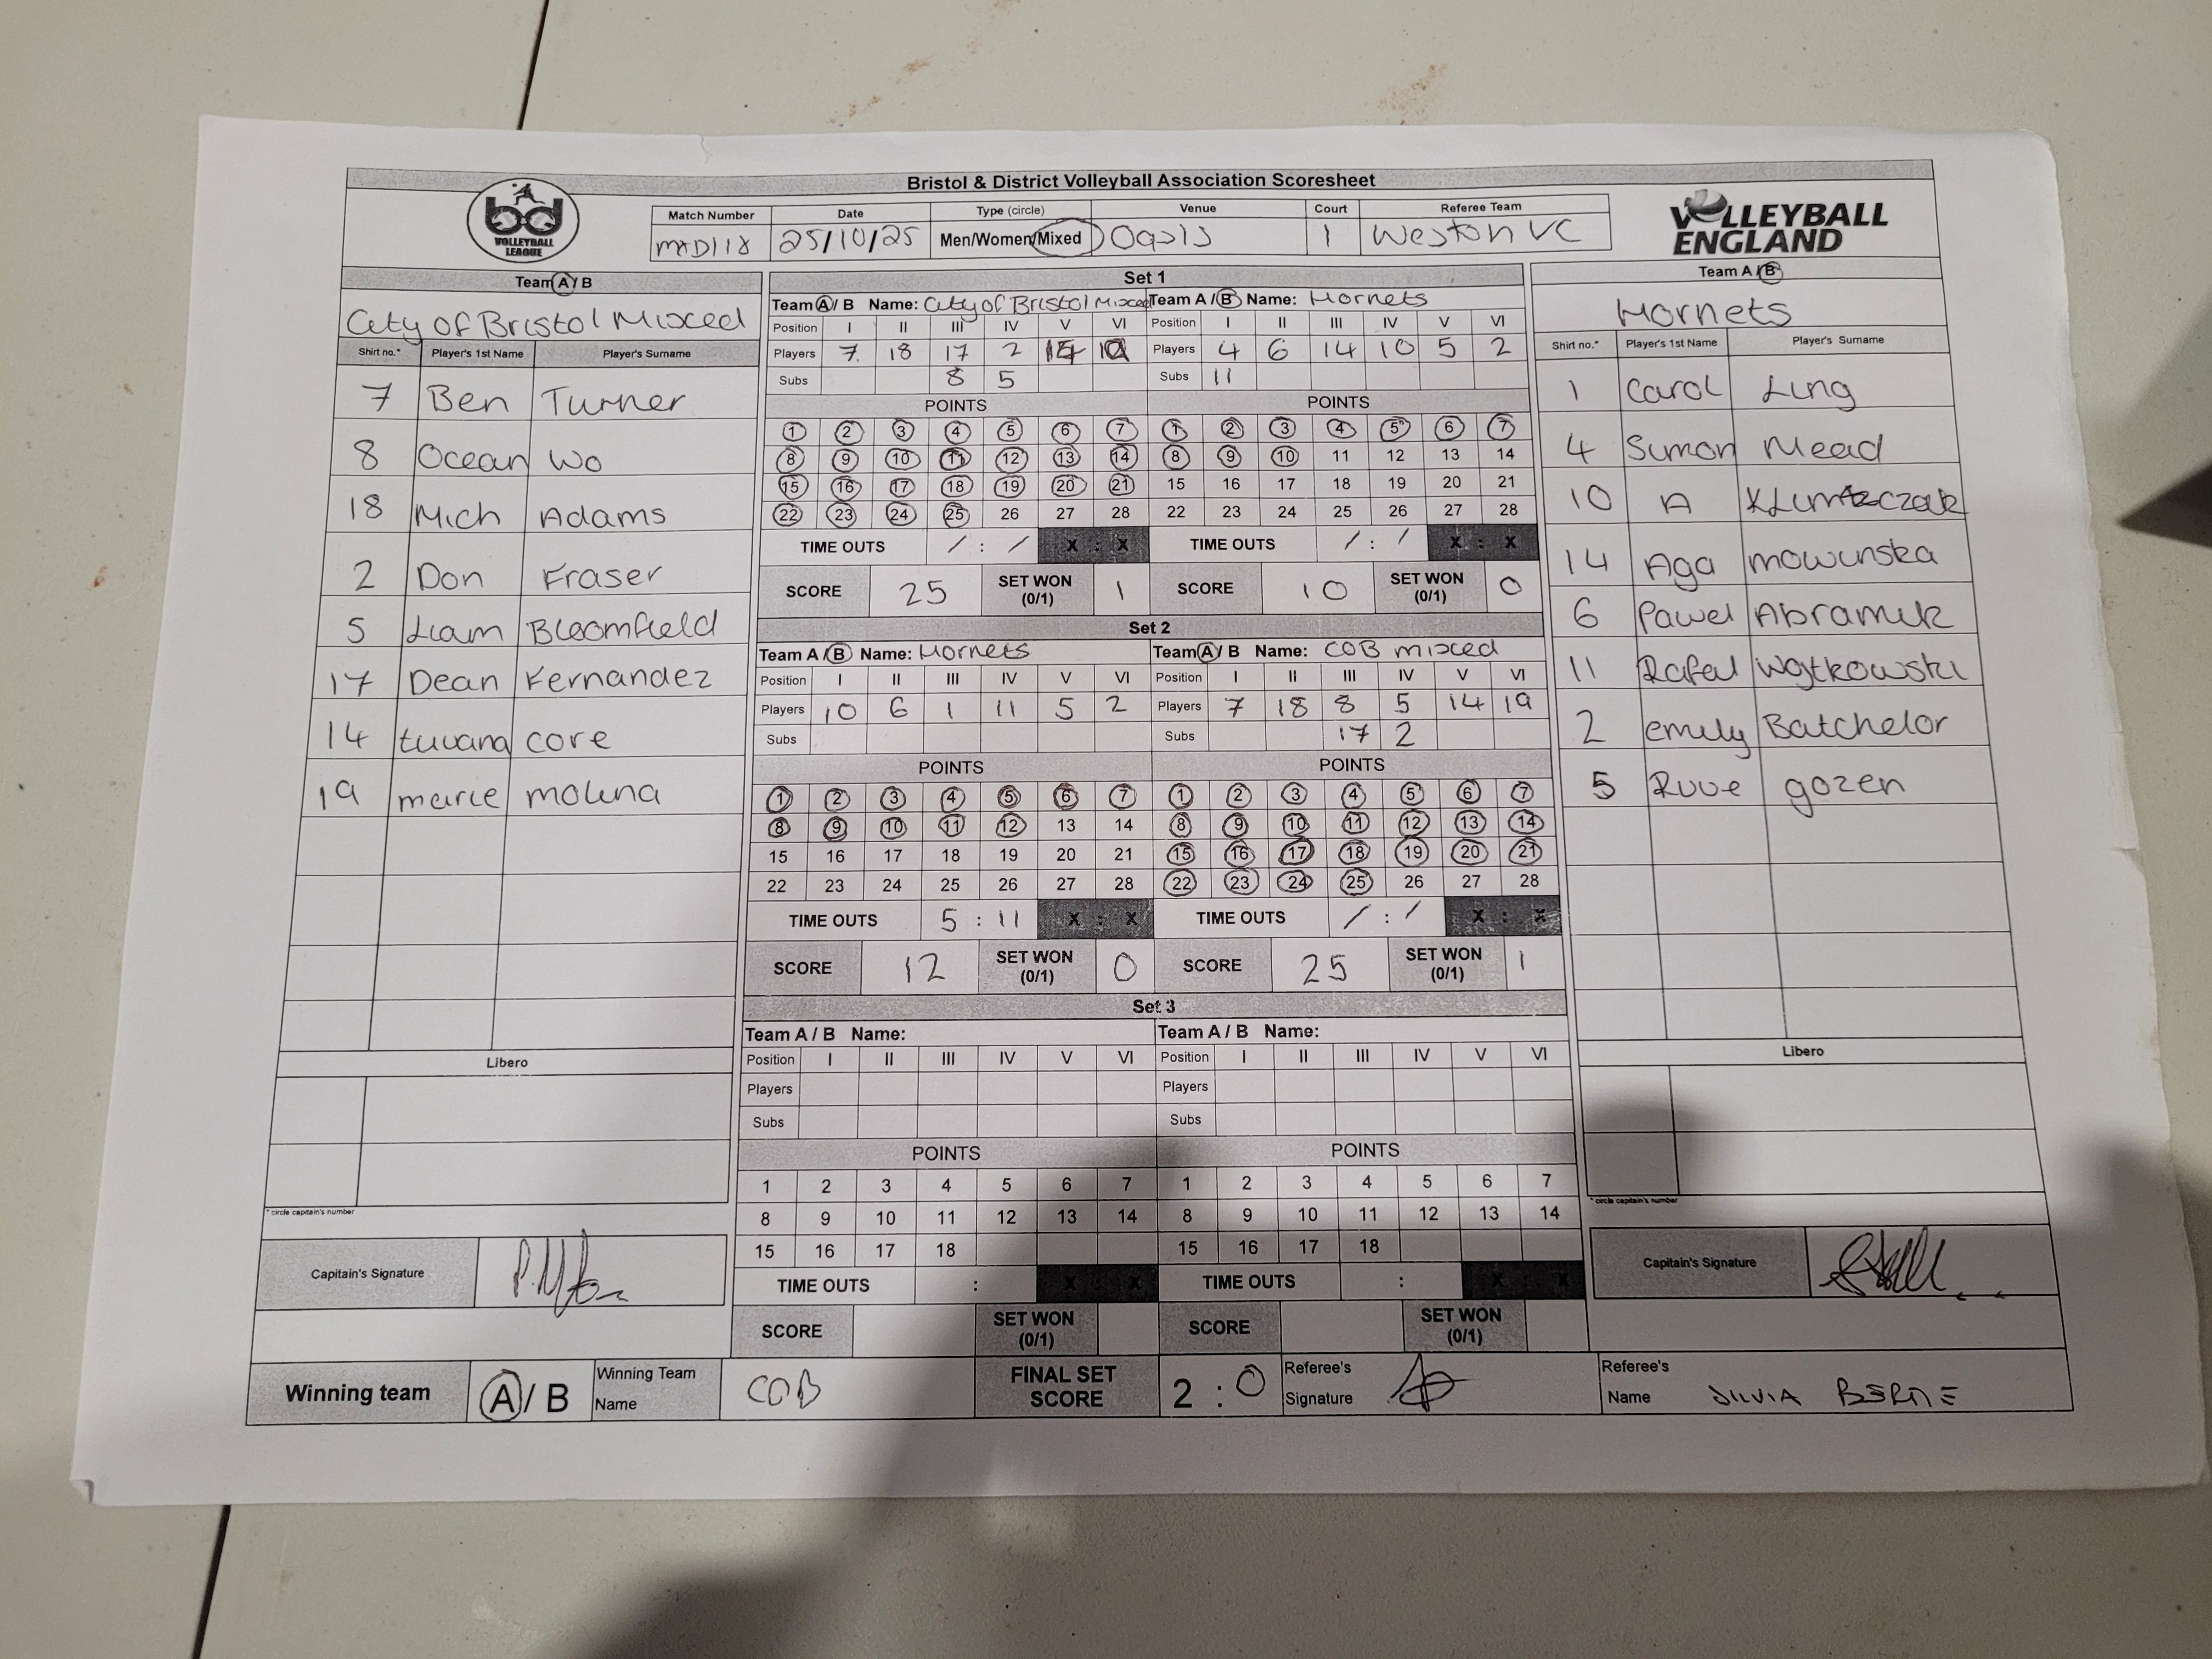 Bristol & District Volleyball Association Scoresheet
bd
VOLLEYBALL
LEAGUE
Match Number Date Type (circle) Venue Court Referee Team
MXD118 25/10/25 Men/Women/Mixed Oasis 1 Weston VC
VOLLEYBALL
ENGLAND
Team A / B
City of Bristol Mixed
Shirt no.* Player's 1st Name Player's Surname
7 Ben Turner
8 Ocean Wo
18 Mich Adams
2 Don Fraser
5 Liam Bloomfield
17 Dean Fernandez
14 tuvana core
19 marie molina
Libero
* circle capitain's number
Capitain's Signature
Set 1
Team A / B Name: City of Bristol Mixed Team A / B Name: Hornets
Position I II III IV V VI Position I II III IV V VI
Players 7 18 17 2 Players 4 6 14 10 5 2
Subs 8 5 Subs 11
POINTS POINTS
1 2 3 4 5 6 7 1 2 3 4 5 6 7
8 9 10 11 12 13 14 8 9 10 11 12 13 14
15 16 17 18 19 20 21 15 16 17 18 19 20 21
22 23 24 25 26 27 28 22 23 24 25 26 27 28
TIME OUTS / : / X : X TIME OUTS / : / X : X
SCORE 25 SET WON (0/1) 1 SCORE 10 SET WON (0/1) 0
Set 2
Team A / B Name: Hornets Team A / B Name: COB mixed
Position I II III IV V VI Position I II III IV V VI
Players 10 6 1 11 5 2 Players 7 18 8 5 14 19
Subs Subs 17 2
POINTS POINTS
1 2 3 4 5 6 7 1 2 3 4 5 6 7
8 9 10 11 12 13 14 8 9 10 11 12 13 14
15 16 17 18 19 20 21 15 16 17 18 19 20 21
22 23 24 25 26 27 28 22 23 24 25 26 27 28
TIME OUTS 5 : 11 X : X TIME OUTS / : / X : X
SCORE 12 SET WON (0/1) 0 SCORE 25 SET WON (0/1) 1
Set 3
Team A / B Name: Team A / B Name:
Position I II III IV V VI Position I II III IV V VI
Players Players
Subs Subs
POINTS POINTS
1 2 3 4 5 6 7 1 2 3 4 5 6 7
8 9 10 11 12 13 14 8 9 10 11 12 13 14
15 16 17 18 15 16 17 18
TIME OUTS : X : X TIME OUTS : X : X
SCORE SET WON (0/1) SCORE SET WON (0/1)
Team A / B
Hornets
Shirt no.* Player's 1st Name Player's Surname
1 Carol Ling
4 Simon Mead
10 A
14 Aga mowinska
6 Pawel Abramik
11 Rafal
2 emily Batchelor
5 gozen
Libero
* circle capitain's number
Capitain's Signature
Winning team A / B Winning Team Name COB FINAL SET SCORE 2 : 0 Referee's Signature Referee's Name SILVIA